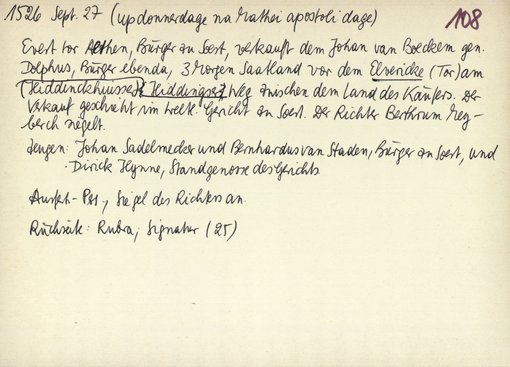 1526 Sept. 27 (up donnerdage na Mathei apostoli dage) 108
Evert tor Aethen, Bürger zu Soest, verkauft dem Johan van Boeckem gen.
Dolphus, Bürger ebenda, 3 Morgen Saatland vor dem Elvericke (Tor) am
(Hiddinckhuser) Hiddingser Weg zwischen dem Land des Käufers. Der
Verkauf geschieht im weltl. Gericht zu Soest. Der Richter Bertram Meg-
berch siegelt.
Zeugen: Johan Sadelmecker und Bernhardus van Staden, Bürger zu Soest, und
Dirick Hynne, Standgenosse des Gerichts
Ausf.- Perg., Siegel des Richters an.
Rückseite: Rubra, Signatur (25)